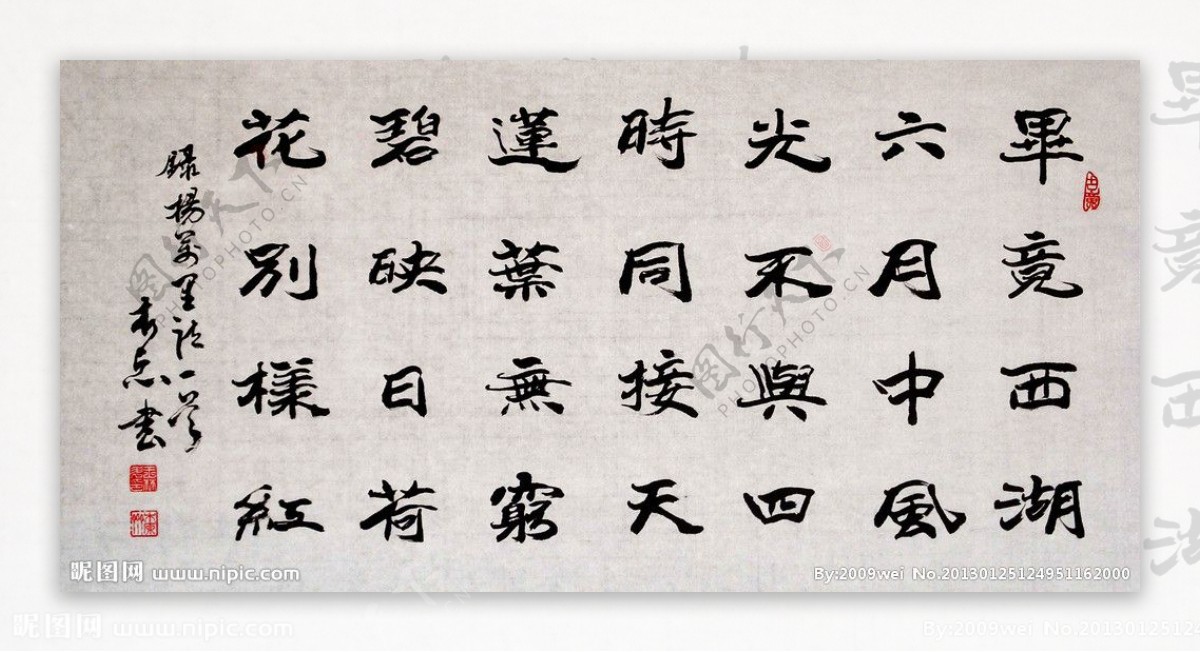 畢竟西湖
六月中風
光不與四
時同接天
蓮葉無窮
碧映日荷
花別樣紅
錄楊萬里詩一首
書
昵图网 www.nipic.com
By:2009wei No.20130125124951162000
昵图网 www.nipic.com
By:2009wei No.20130125124